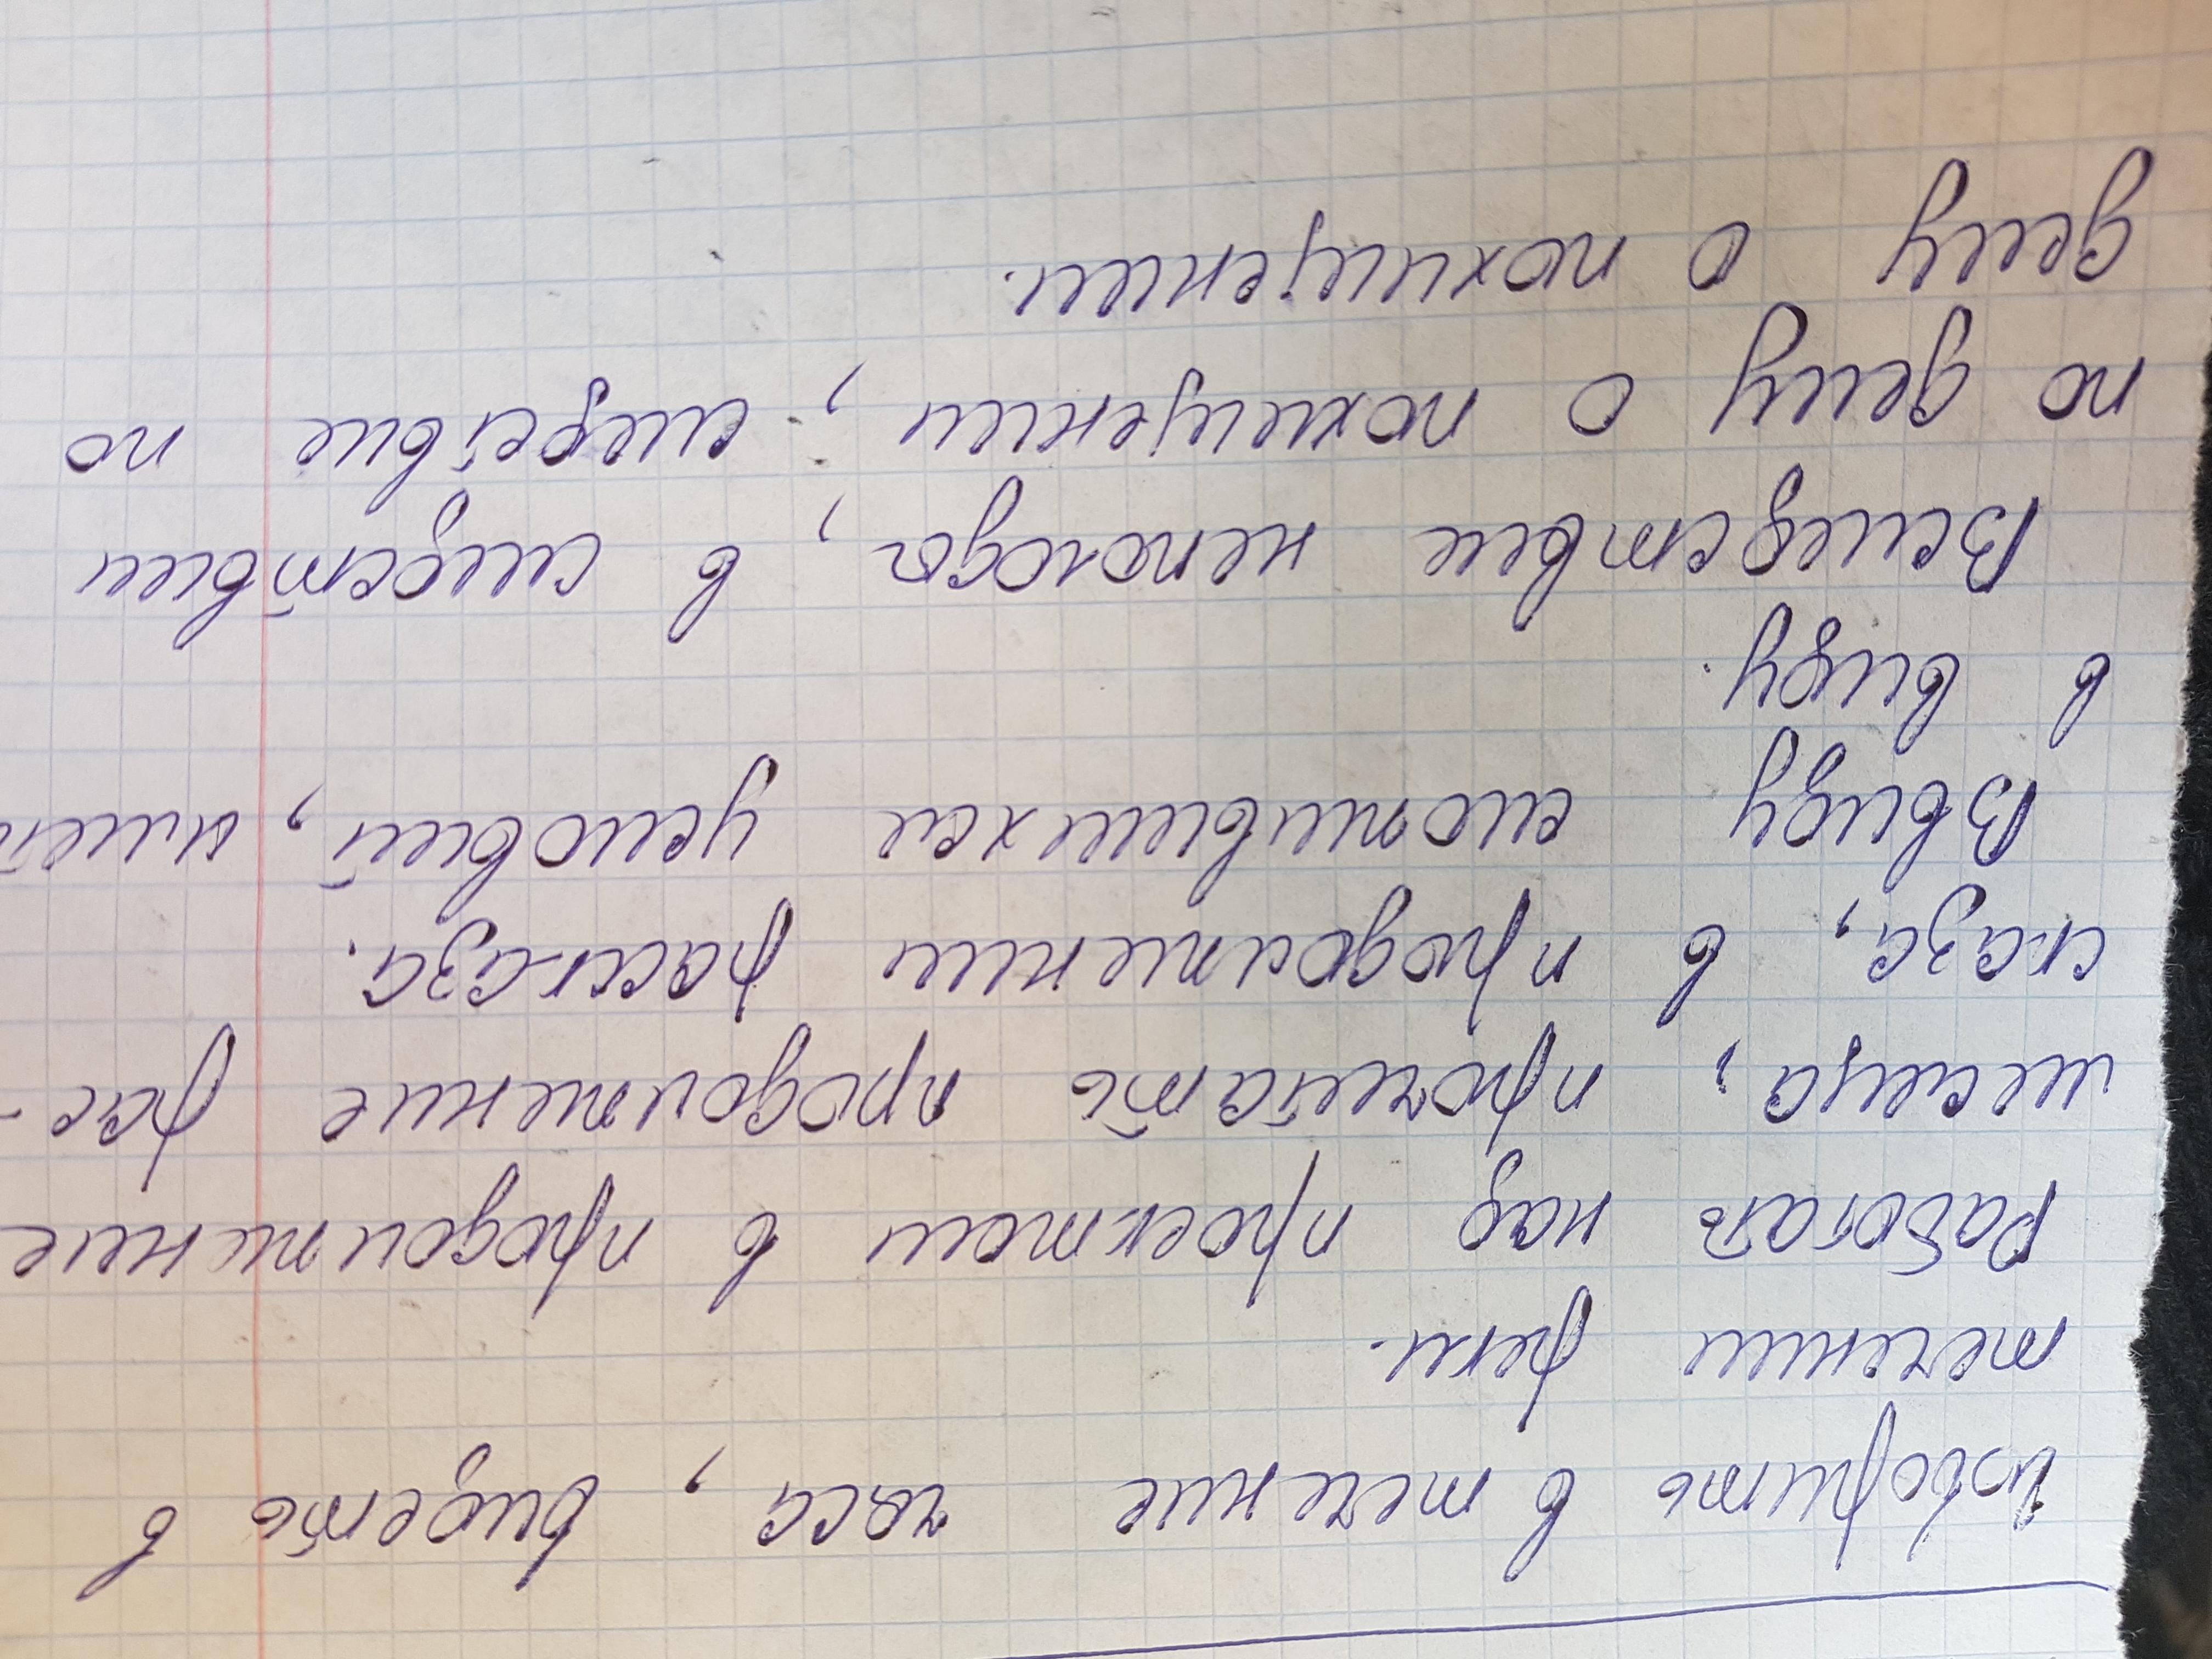 Говорить в течение часа, видеть в
течении реки.
Работать над проектом в продолжение
месяца, прочитать продолжение рас-
сказа, в продолжении рассказа.
Ввиду сложившихся условий, имет
в виду.
Вследствие непогоды, в следствии
по делу о похищении, следствие по
делу о похищении.